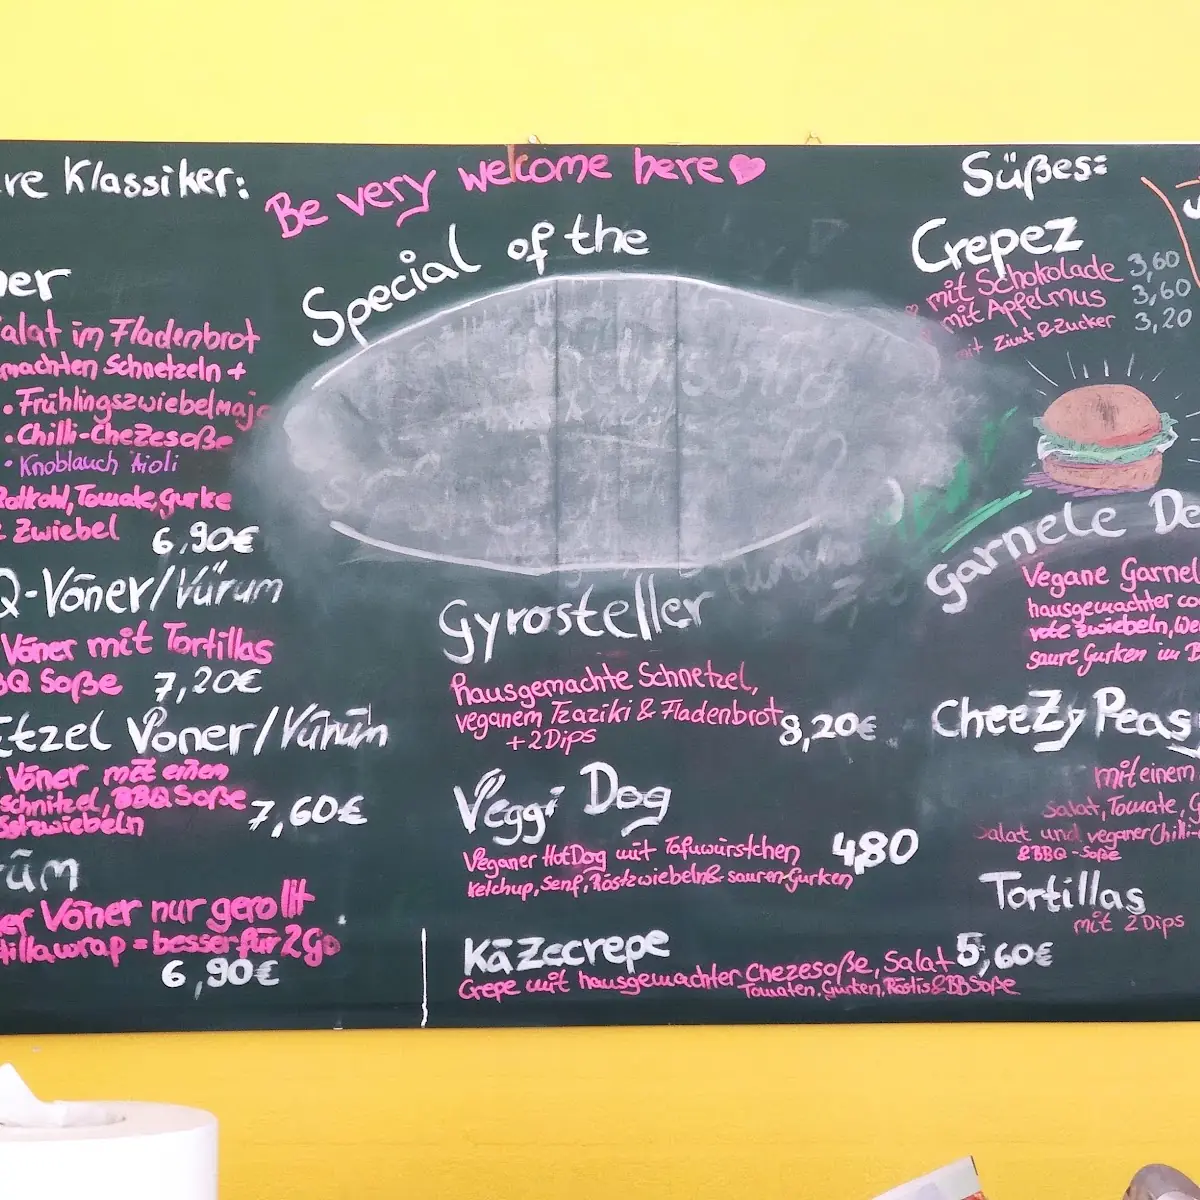 re Klassiker:
er
alat im Fladenbrot
machten Schnetzeln +
• Frühlingszwiebelmajo
• Chilli-Chezesoße
• Knoblauch Aioli
Rotkohl, Tomate, Gurke
Zwiebel 6,90€
Q-Vöner/Vürüm
Vöner mit Tortillas
BQ Soße 7,20€
etzel Vöner/Vürüm
Vöner mit einem
schnitzel, BBQ Soße
östzwiebeln 7,60€
rüm
er Vöner nur gerollt
tillawrap = besser für 2Go
6,90€
Be very welcome here
Special of the
Gyrosteller
hausgemachte Schnetzel,
veganem Tzaziki & Fladenbrot
+ 2 Dips 8,20€
Veggi Dog
Veganer HotDog mit Tofuwürstchen 4,80
Ketchup, Senf, Röstzwiebeln & sauren Gurken
Käzecrepe 5,60€
Crepe mit hausgemachter Chezesoße, Salat
Tomaten, Gurken, Röstis & BBSoße
Süßes:
Crepez
mit Schokolade 3,60
mit Apfelmus 3,60
mit Zimt & Zucker 3,20
Garnele
Vegane Garnel
hausgemachter
rote zwiebeln,
saure Gurken im B
CheeZy Peas
mit einem
Salat, Tomate, G
Salat und veganer Chilli-
& BBQ-Soße
Tortillas
mit 2 Dips